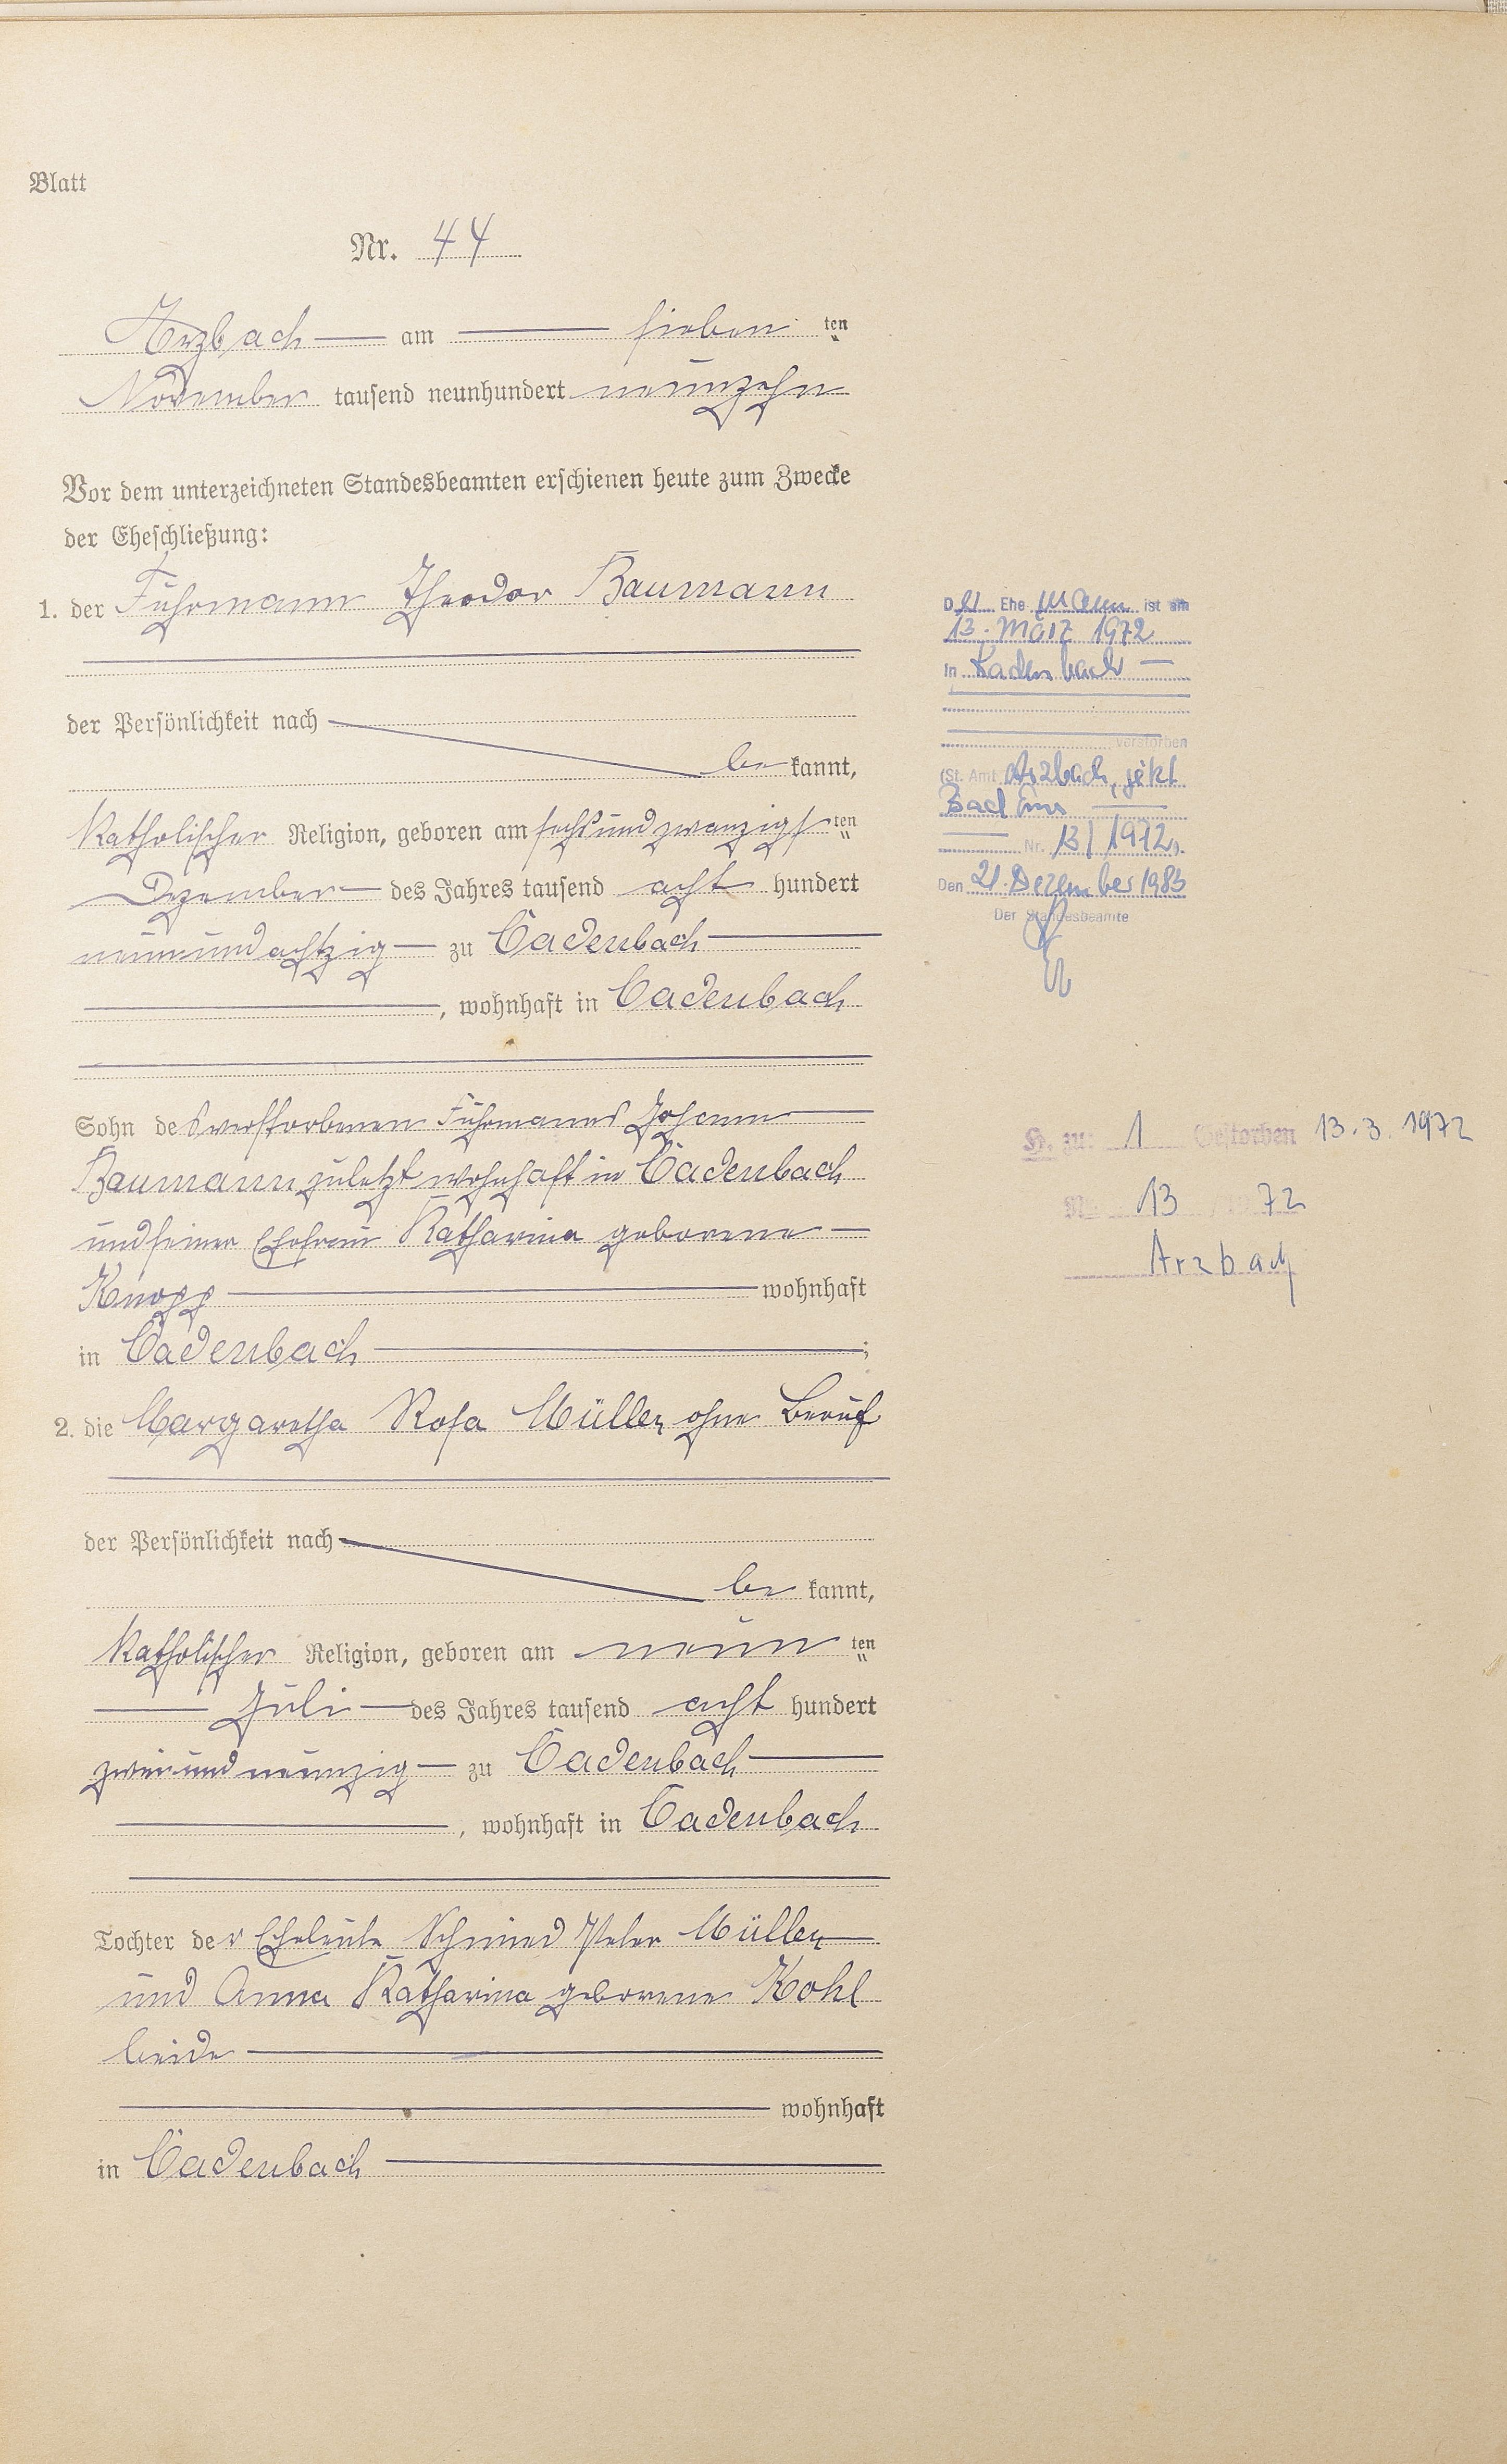 Blatt
Nr. 44
Arzbach am sieben ten
November tausend neunhundert neunzehn
Vor dem unterzeichneten Standesbeamten erschienen heute zum Zwecke
der Eheschließung:
1. der Fuhrmann Theodor Baumann
der Persönlichkeit nach
be kannt,
katholischer Religion, geboren am sechsundzwanzigs ten
Dezember des Jahres tausend acht hundert
neunundachtzig zu Cadenbach
, wohnhaft in Cadenbach
Sohn des verstorbenen Fuhrmanns Johann
Baumann zuletzt wohnhaft in Cadenbach
und seiner Ehefrau Katharina geborene
Knopp wohnhaft
in Cadenbach ;
2. die Margaretha Rosa Müller ohne Beruf
der Persönlichkeit nach
be kannt,
katholischer Religion, geboren am neun ten
Juli des Jahres tausend acht hundert
zweiundneunzig zu Cadenbach
, wohnhaft in Cadenbach
Tochter der Eheleute Schmied Peter Müller
und Anna Katharina geborene Kohl
beide
wohnhaft
in Cadenbach
Der Ehemann ist am
13. März 1972
in Kadenbach
verstorben
(St. Amt Arzbach, jetzt
Bad Ems
Nr. 13/1972).
Den 21. Dezember 1983
Der Standesbeamte
H. zu: 1 Gestorben 13.3.1972
Nr. 13 72
Arzbach